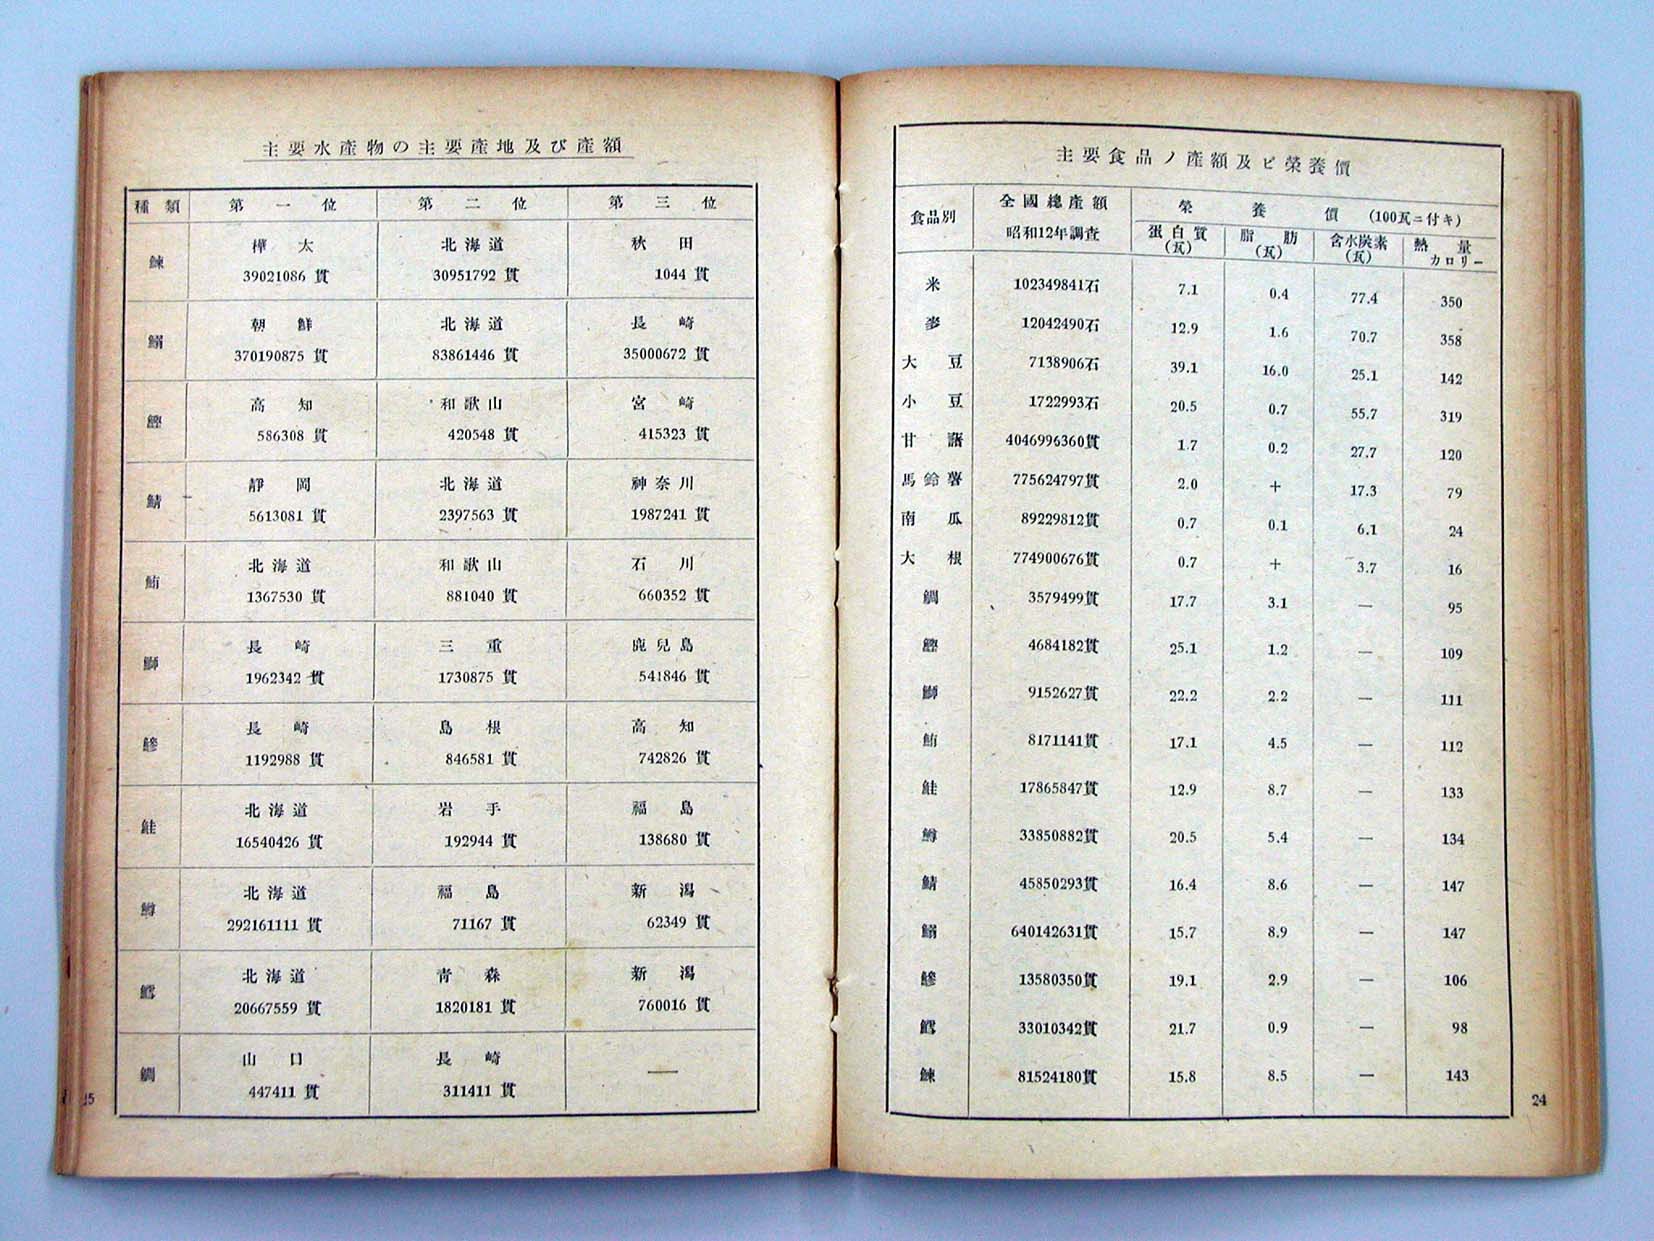 主要食品ノ產額及ビ榮養價
食品別 全國總產額 昭和12年調查 榮養價 (100瓦ニ付キ)
蛋白質(瓦) 脂肪(瓦) 含水炭素(瓦) 熱量カロリー
米 102349841石 7.1 0.4 77.4 350
麥 12042490石 12.9 1.6 70.7 358
大豆 7138906石 39.1 16.0 25.1 142
小豆 1722993石 20.5 0.7 55.7 319
甘藷 4046996360貫 1.7 0.2 27.7 120
馬鈴薯 775624797貫 2.0 + 17.3 79
南瓜 89229812貫 0.7 0.1 6.1 24
大根 774900676貫 0.7 + 3.7 16
鯛 3579499貫 17.7 3.1 — 95
鰹 4684182貫 25.1 1.2 — 109
鰤 9152627貫 22.2 2.2 — 111
鮪 8171141貫 17.1 4.5 — 112
鮭 17865847貫 12.9 8.7 — 133
鱒 33850882貫 20.5 5.4 — 134
鯖 45850293貫 16.4 8.6 — 147
鰯 640142631貫 15.7 8.9 — 147
鰺 13580350貫 19.1 2.9 — 106
鱈 33010342貫 21.7 0.9 — 98
鰊 81524180貫 15.8 8.5 — 143
24
主要水產物の主要產地及び產額
種類 第一位 第二位 第三位
鰊 樺太 北海道 秋田
39021086貫 30951792貫 1044貫
鰯 朝鮮 北海道 長崎
370190875貫 83861446貫 35000672貫
鰹 高知 和歌山 宮崎
586308貫 420548貫 415323貫
鯖 靜岡 北海道 神奈川
5613081貫 2397563貫 1987241貫
鮪 北海道 和歌山 石川
1367530貫 881040貫 660352貫
鰤 長崎 三重 鹿兒島
1962342貫 1730875貫 541846貫
鰺 長崎 島根 高知
1192988貫 846581貫 742826貫
鮭 北海道 岩手 福島
16540426貫 192944貫 138680貫
鱒 北海道 福島 新潟
292161111貫 71167貫 62349貫
鱈 北海道 靑森 新潟
20667559貫 1820181貫 760016貫
鯛 山口 長崎 —
447411貫 311411貫
25